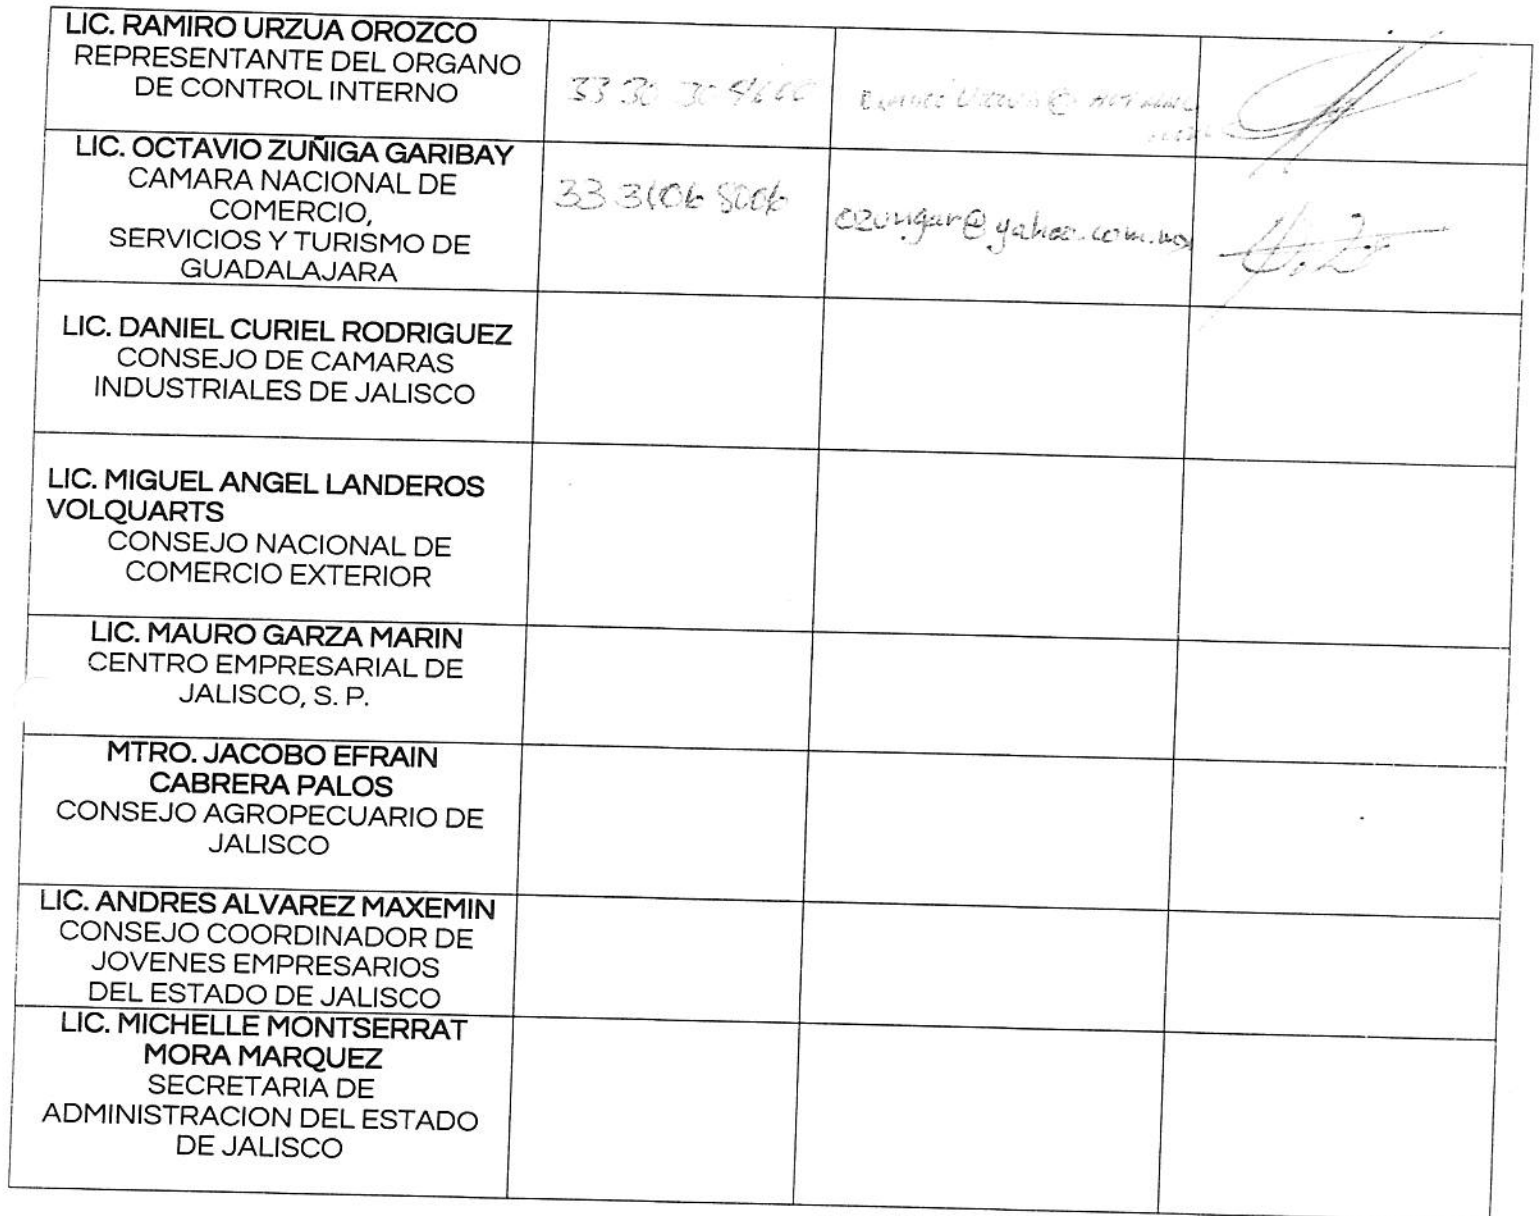 LIC. RAMIRO URZUA OROZCO
REPRESENTANTE DEL ORGANO
DE CONTROL INTERNO
33 30 30
LIC. OCTAVIO ZUÑIGA GARIBAY
CAMARA NACIONAL DE
COMERCIO,
SERVICIOS Y TURISMO DE
GUADALAJARA
33 3106 8006
ozunigar@yahoo.com.mx
LIC. DANIEL CURIEL RODRIGUEZ
CONSEJO DE CAMARAS
INDUSTRIALES DE JALISCO
LIC. MIGUEL ANGEL LANDEROS
VOLQUARTS
CONSEJO NACIONAL DE
COMERCIO EXTERIOR
LIC. MAURO GARZA MARIN
CENTRO EMPRESARIAL DE
JALISCO, S. P.
MTRO. JACOBO EFRAIN
CABRERA PALOS
CONSEJO AGROPECUARIO DE
JALISCO
LIC. ANDRES ALVAREZ MAXEMIN
CONSEJO COORDINADOR DE
JOVENES EMPRESARIOS
DEL ESTADO DE JALISCO
LIC. MICHELLE MONTSERRAT
MORA MARQUEZ
SECRETARIA DE
ADMINISTRACION DEL ESTADO
DE JALISCO